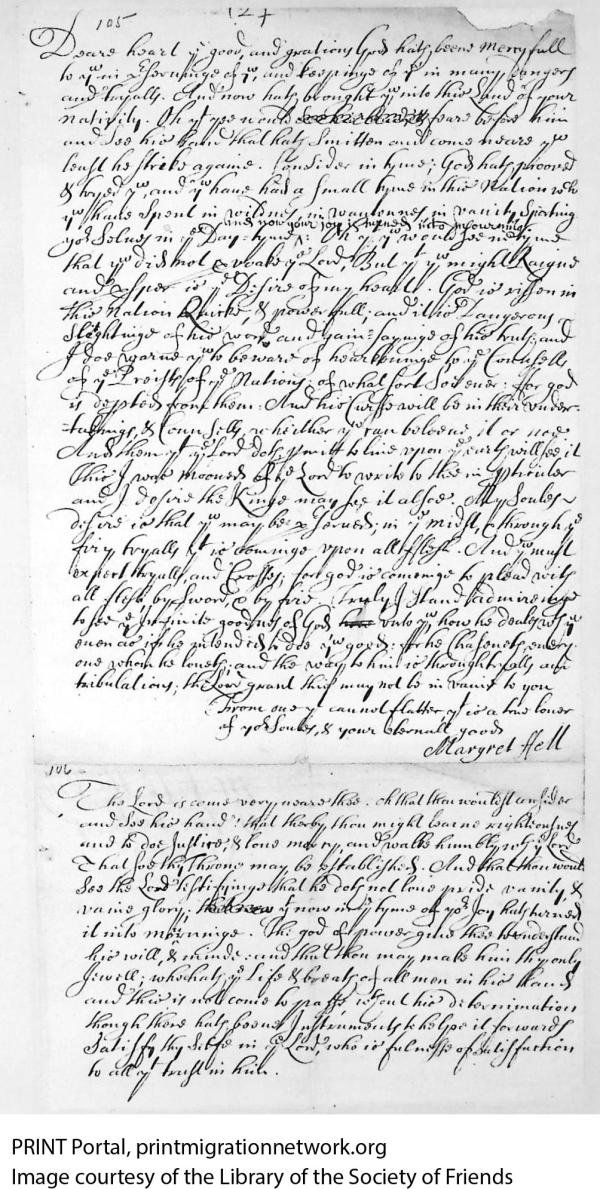 105
124
Deare heart yᵉ good, and gratious God hath beene mercyfull
to yᵘ in yᵉ governinge of yᵘ, and keepinge of yᵘ in many dangers
and tryalls. And now hath brought yᵘ into this Land of your
nativity. Oh yᵗ yee would feare before him
and see his hand that hath smitten and come neare yᵘ
least he strike againe. Consider in tyme; God hath prooved
& tryed yᵘ, and yᵘ have had a small tyme in this Nation wᶜʰ
yᵘ have spent in wildnes, in wantonnes in vanity Sporting
and now your joy is turned into mourninge
yoʳ Selves in yᵉ Day-tyme: Oh yᵗ yᵘ would see in tyme
that yᵘ did not pvoake yᵉ Lord, But yᵗ yᵘ might Raigne
and psper is yᵉ Desire of my heart. God is rissen in
this Nation Quicke, & powerfull; and it is Dangerous
Slightinge of his word and gain-sayinge of his truth; and
I doe warne yᵘ to beware of hearkninge to yᵉ Counsells
of yᵉ Preists of yᵉ Nations, of what sort soever: for god
is depted from them: And his Curse will be in their under-
-takings, & Counsells, whether yᵘ can beleeve it or noe
And them yᵗ yᵉ Lord doth pmitt to live upon yᵉ earth will see it
This I was mooved of yᵉ Lord to write to thee in pticuler
and I desire the Kinge may see it alsoe. My Soules
desire is that yᵘ may be pserved, in yᵉ midst, & through yᵉ
firy tryalls yᵗ is cominge upon all Flesh. And yᵘ must
expect tryalls, and Crosses; for god is comeinge to plead with
all flesh by Sword, & by fire: Truly I stand admireinge
to see yᵉ Infinite goodnes of God unto yᵘ, how he deales wᵗʰ yᵘ
even as if he intended to doe yᵘ good: ffor he Chaseneth every
one whom he loveth; and the way to him is through tryalls and
tribulations; the Lord grant this may not be in vaine to you
From one yᵗ cannot flatter yᵗ is a true lover
of yoʳ Soules, & your eternall good
Margret ffell
106
The Lord is come very neare thee. oh that thou wouldst consider
and see his hand; that therby thou might learne righteousnes
and to doe Justice, & love mercy, and walke humbly wᵗʰ yᵉ Lord
That soe thy Throne may be established. And that thou would
see the Lord testifinge that he doth not love pride vanity, &
vaine glory; yᵗ now in yᵉ tyme of yoʳ Joy hath turned
it into mourninge. The god of power give thee to understand
his will, & minde: and that thou may make him thy only
Jewell; who hath yᵉ Life & breath of all men in his Hand
and this is not come to passe wᵗʰout his determination
though there hath beene Instruments to helpe it forwards
Satisfy thy Selfe in yᵉ Lord, who is fulnesse of satisfaction
to all yᵗ trust in him.
PRINT Portal, printmigrationnetwork.org
Image courtesy of the Library of the Society of Friends